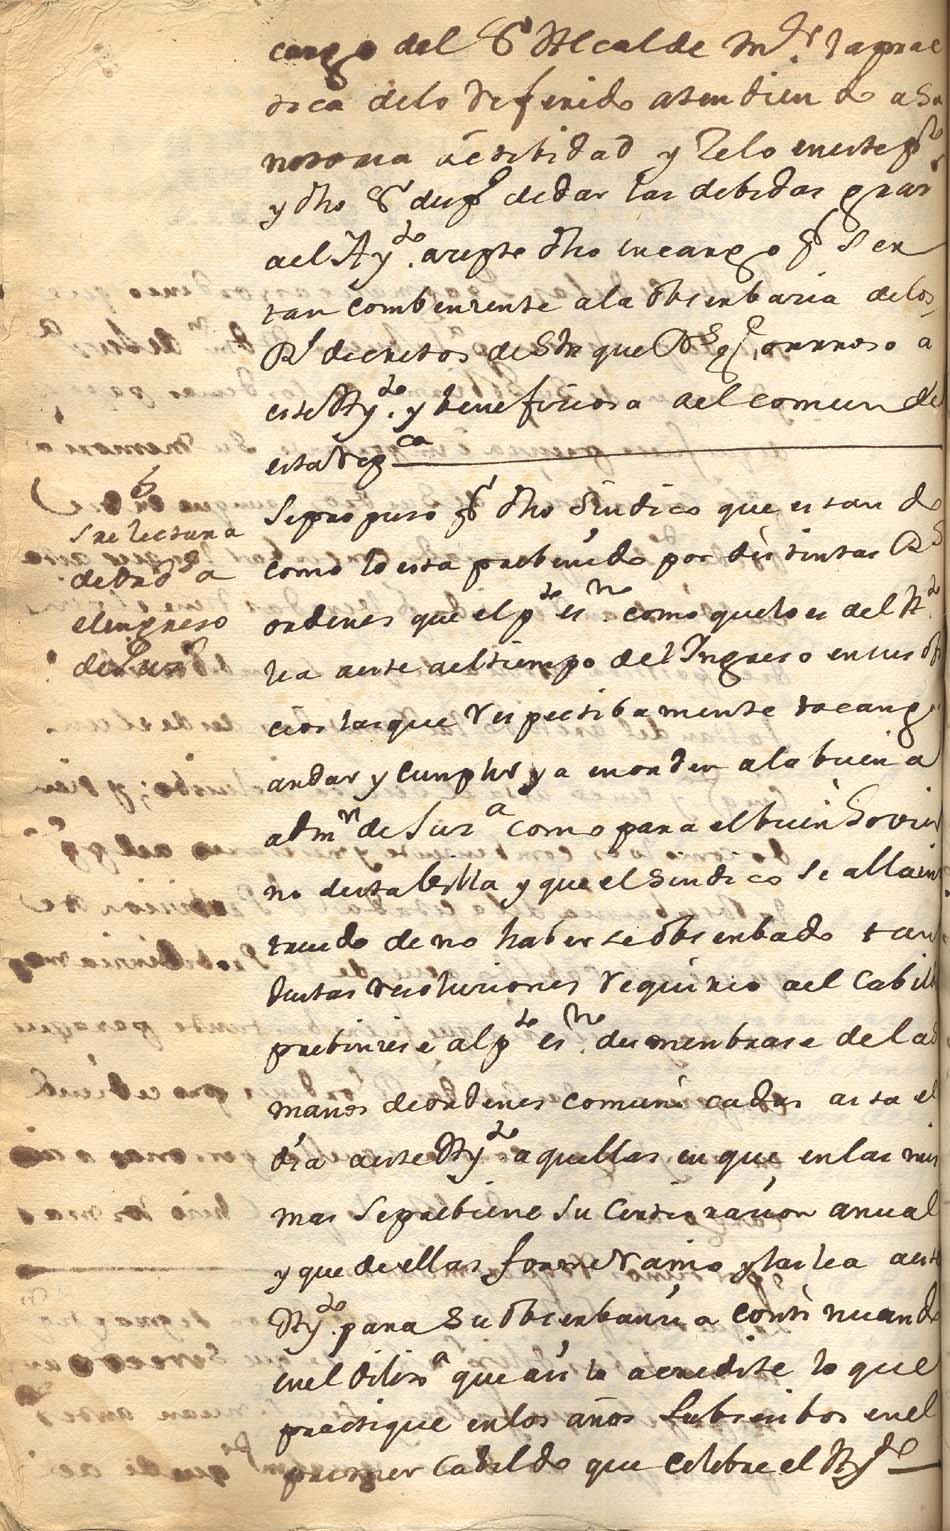 cargo del Sr Alcalde Mr. la prac
tica de lo referido atendiendo a Su
notoria actibidad y Zelo en este pto
y dho Sr desps de dar las debidas gras
a el Ayto. acepta dho encargo pr Ser
tan combeniente a la obserbazia de los
Rs decretos de Su que Ds ge, onrroso a
este Ayto. y beneficiosa a el comun de
esta Repca
6
Se lectura
de Ords a
el ingreso
de Jusa
Se propuso pr dho Sindico que estando
como lo esta prebenido por distintas Rs
ordenes que el pte esno como que lo es del Ayto.
lea a este a el tiempo del Ingreso en sus ofi
cios las que respectibamente toca
andar y cumplir ya en orden a la buena
admn de Jusa como para el buen Govier
no desta Villa y que el Sindico se alla ins
truido de no haberse obserbado tan
Justas resoluziones requirio a el Cabildo
prebiniese al pte esno. desmenbrase de la
manos de ordenes comunicadas asta el
dia a este Ayto a quellas en que en las mis
mas Se prebiene Su Certificazion anual
y que de ellas forme ramo y las lea a este
Ayto. para Su obserbanzia continuando
en el Diliza que asi lo acredite lo que
practique en los años Subsecibos en el
primer Cabildo que celebre el Ayto